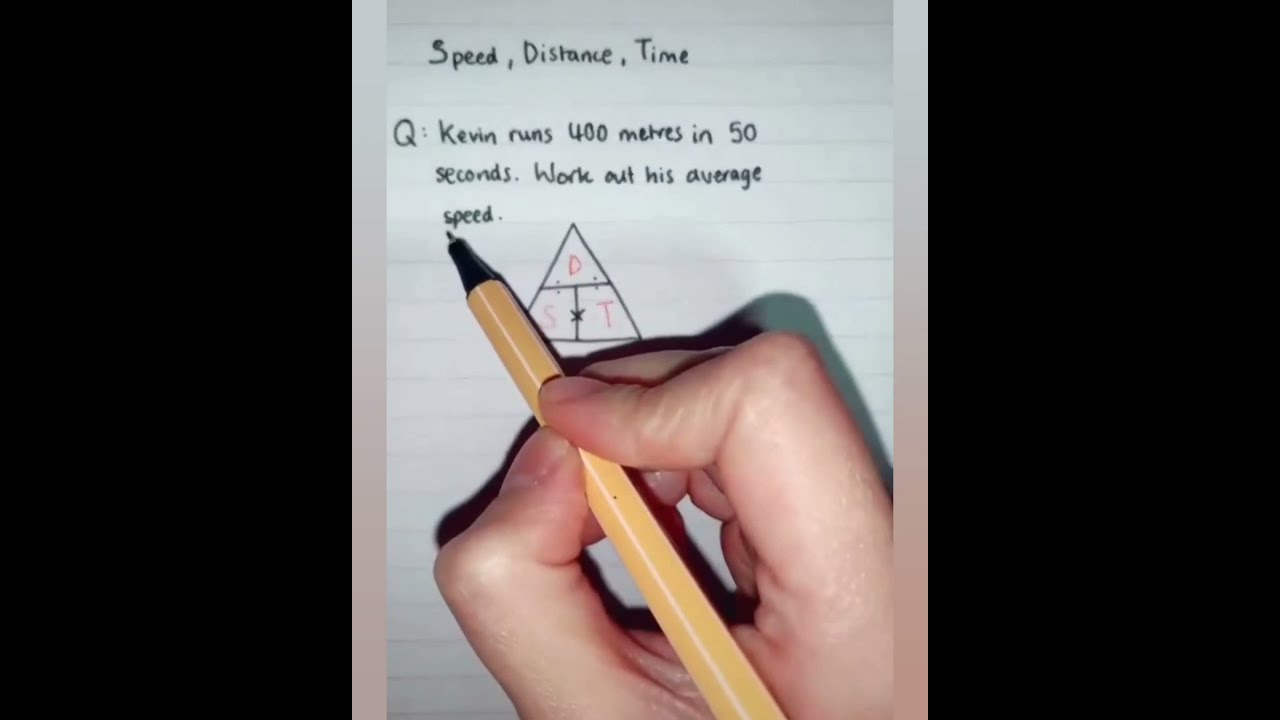 Speed, Distance, Time
Q: Kevin runs 400 metres in 50
seconds. Work out his average
speed.
D
S × T